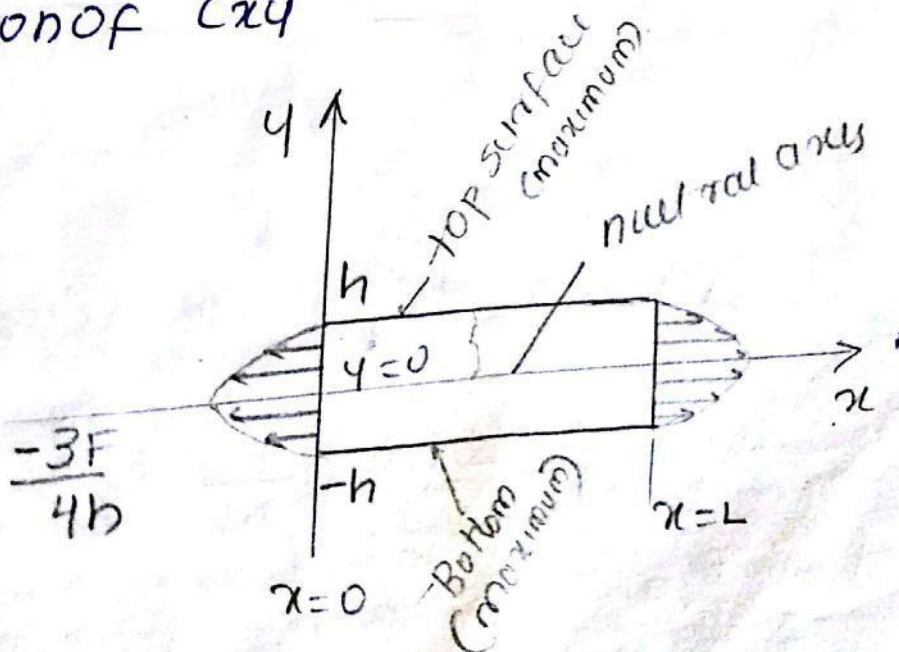 onof τxy
y
top surface
(maximum)
nuetral axis
h
y=0
x
-3F
4h
-h
Bottom
(maximum)
x=L
x=0